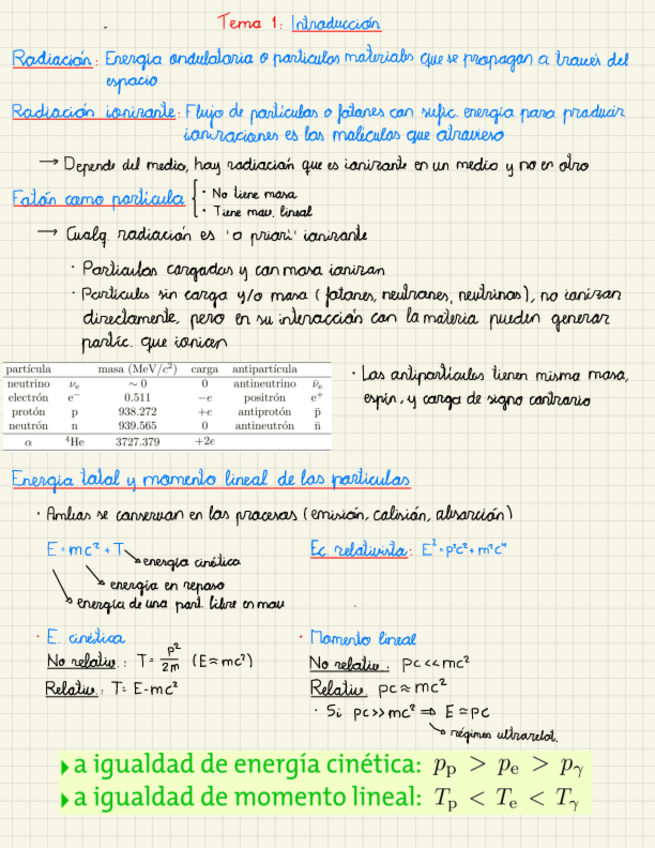 Tema 1: Introducción
Radiación: Energía ondulatoria o partículas materiales que se propagan a través del
espacio
Radiación ionizante: Flujo de partículas o fotones con sufic. energía para producir
ionizaciones es las moléculas que atravieso
→ Depende del medio, hay radiación que es ionizante en un medio y no en otro
Fotón como partícula { · No tiene masa
· Tiene mov. lineal
→ Cualq. radiación es 'a priori' ionizante
· Partículas cargadas y con masa ionizan
· Partículas sin carga y/o masa (fotones, neutrones, neutrinos), no ionizan
directamente, pero en su interacción con la materia pueden generar
partíc. que ionicen
partícula masa (MeV/c²) carga antipartícula
neutrino νe ~ 0 0 antineutrino ν̄e
electrón e⁻ 0.511 −e positrón e⁺
protón p 938.272 +e antiprotón p̄
neutrón n 939.565 0 antineutrón n̄
α ⁴He 3727.379 +2e
· Las antipartículas tienen misma masa,
espín, y carga de signo contrario
Energía total y momento lineal de las partículas
· Ambas se conservan en los procesos (emisión, colisión, absorción)
E = mc² + T
energía cinética
energía en reposo
energía de una part. libre en mov
Ec. relativista: E² = p²c² + m²c⁴
· E. cinética
No relativ.: T = p²/2m (E ≈ mc²)
Relativ.: T = E - mc²
· Momento lineal
No relativ.: pc << mc²
Relativ. pc ≈ mc²
· Si pc >> mc² ⇒ E ≃ pc
régimen ultrarrelat.
▸ a igualdad de energía cinética: pp > pe > pγ
▸ a igualdad de momento lineal: Tp < Te < Tγ